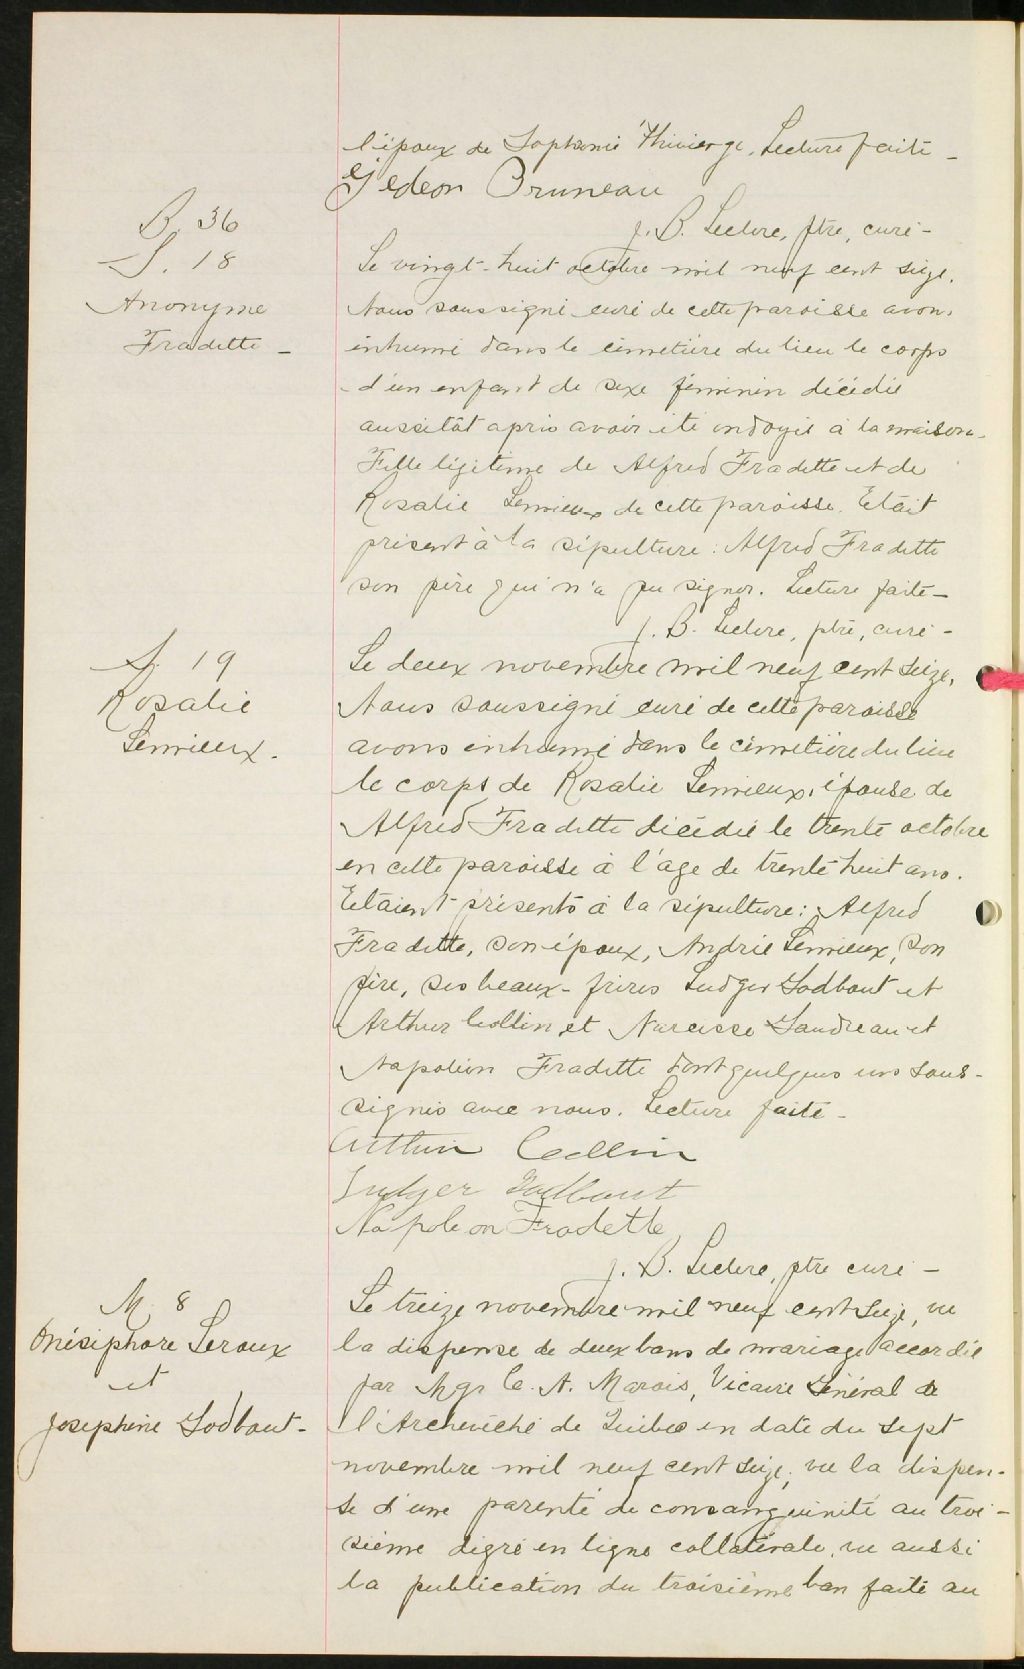 l'époux de Sophronie Thivierge, Lecture faite -
Gédeon Bruneau
J. B. Leclerc, ptre, curé -
B. 36
S. 18
Anonyme
Fradette -
Le vingt-huit octobre mil neuf cent seize,
Nous soussigné curé de cette paroisse avons
inhumé dans le cimetière du lieu le corps
d'un enfant de sexe féminin décédé
aussitôt après avoir été ondoyé à la maison.
Fille légitime de Alfred Fradette et de
Rosalie Lemieux de cette paroisse. Etait
présent à la sépulture: Alfred Fradette
son père qui n'a pu signer. Lecture faite -
J. B. Leclerc, ptre, curé -
S. 19
Rosalie
Lemieux.
Le deux novembre mil neuf cent seize,
Nous soussigné curé de cette paroisse
avons inhumé dans le cimetière du lieu
le corps de Rosalie Lemieux, épouse de
Alfred Fradette décédée le trente octobre
en cette paroisse à l'âge de trente huit ans.
Etaient présents à la sépulture: Alfred
Fradette, son époux, André Lemieux, son
père, ses beaux-frères Ludger Godbout et
Arthur Collin et Narcisse Gaudreau et
Napoléon Fradette dont quelques uns sous-
signés avec nous. Lecture faite -
Arthur Collin
Ludger Godbout
Napoleon Fradette
J. B. Leclerc, ptre curé -
M. 8
Onésiphore Leroux
et
Josephine Godbout -
Le treize novembre mil neuf cent seize, vu
la dispense de deux bans de mariage accordée
par Mgr C. A. Marois, Vicaire Général de
l'Archevêché de Québec en date du sept
novembre mil neuf cent seize, vu la dispen-
se d'une parenté de consanguinité au troi-
sième degré en ligne collatérale, vu aussi
la publication du troisième ban faite au